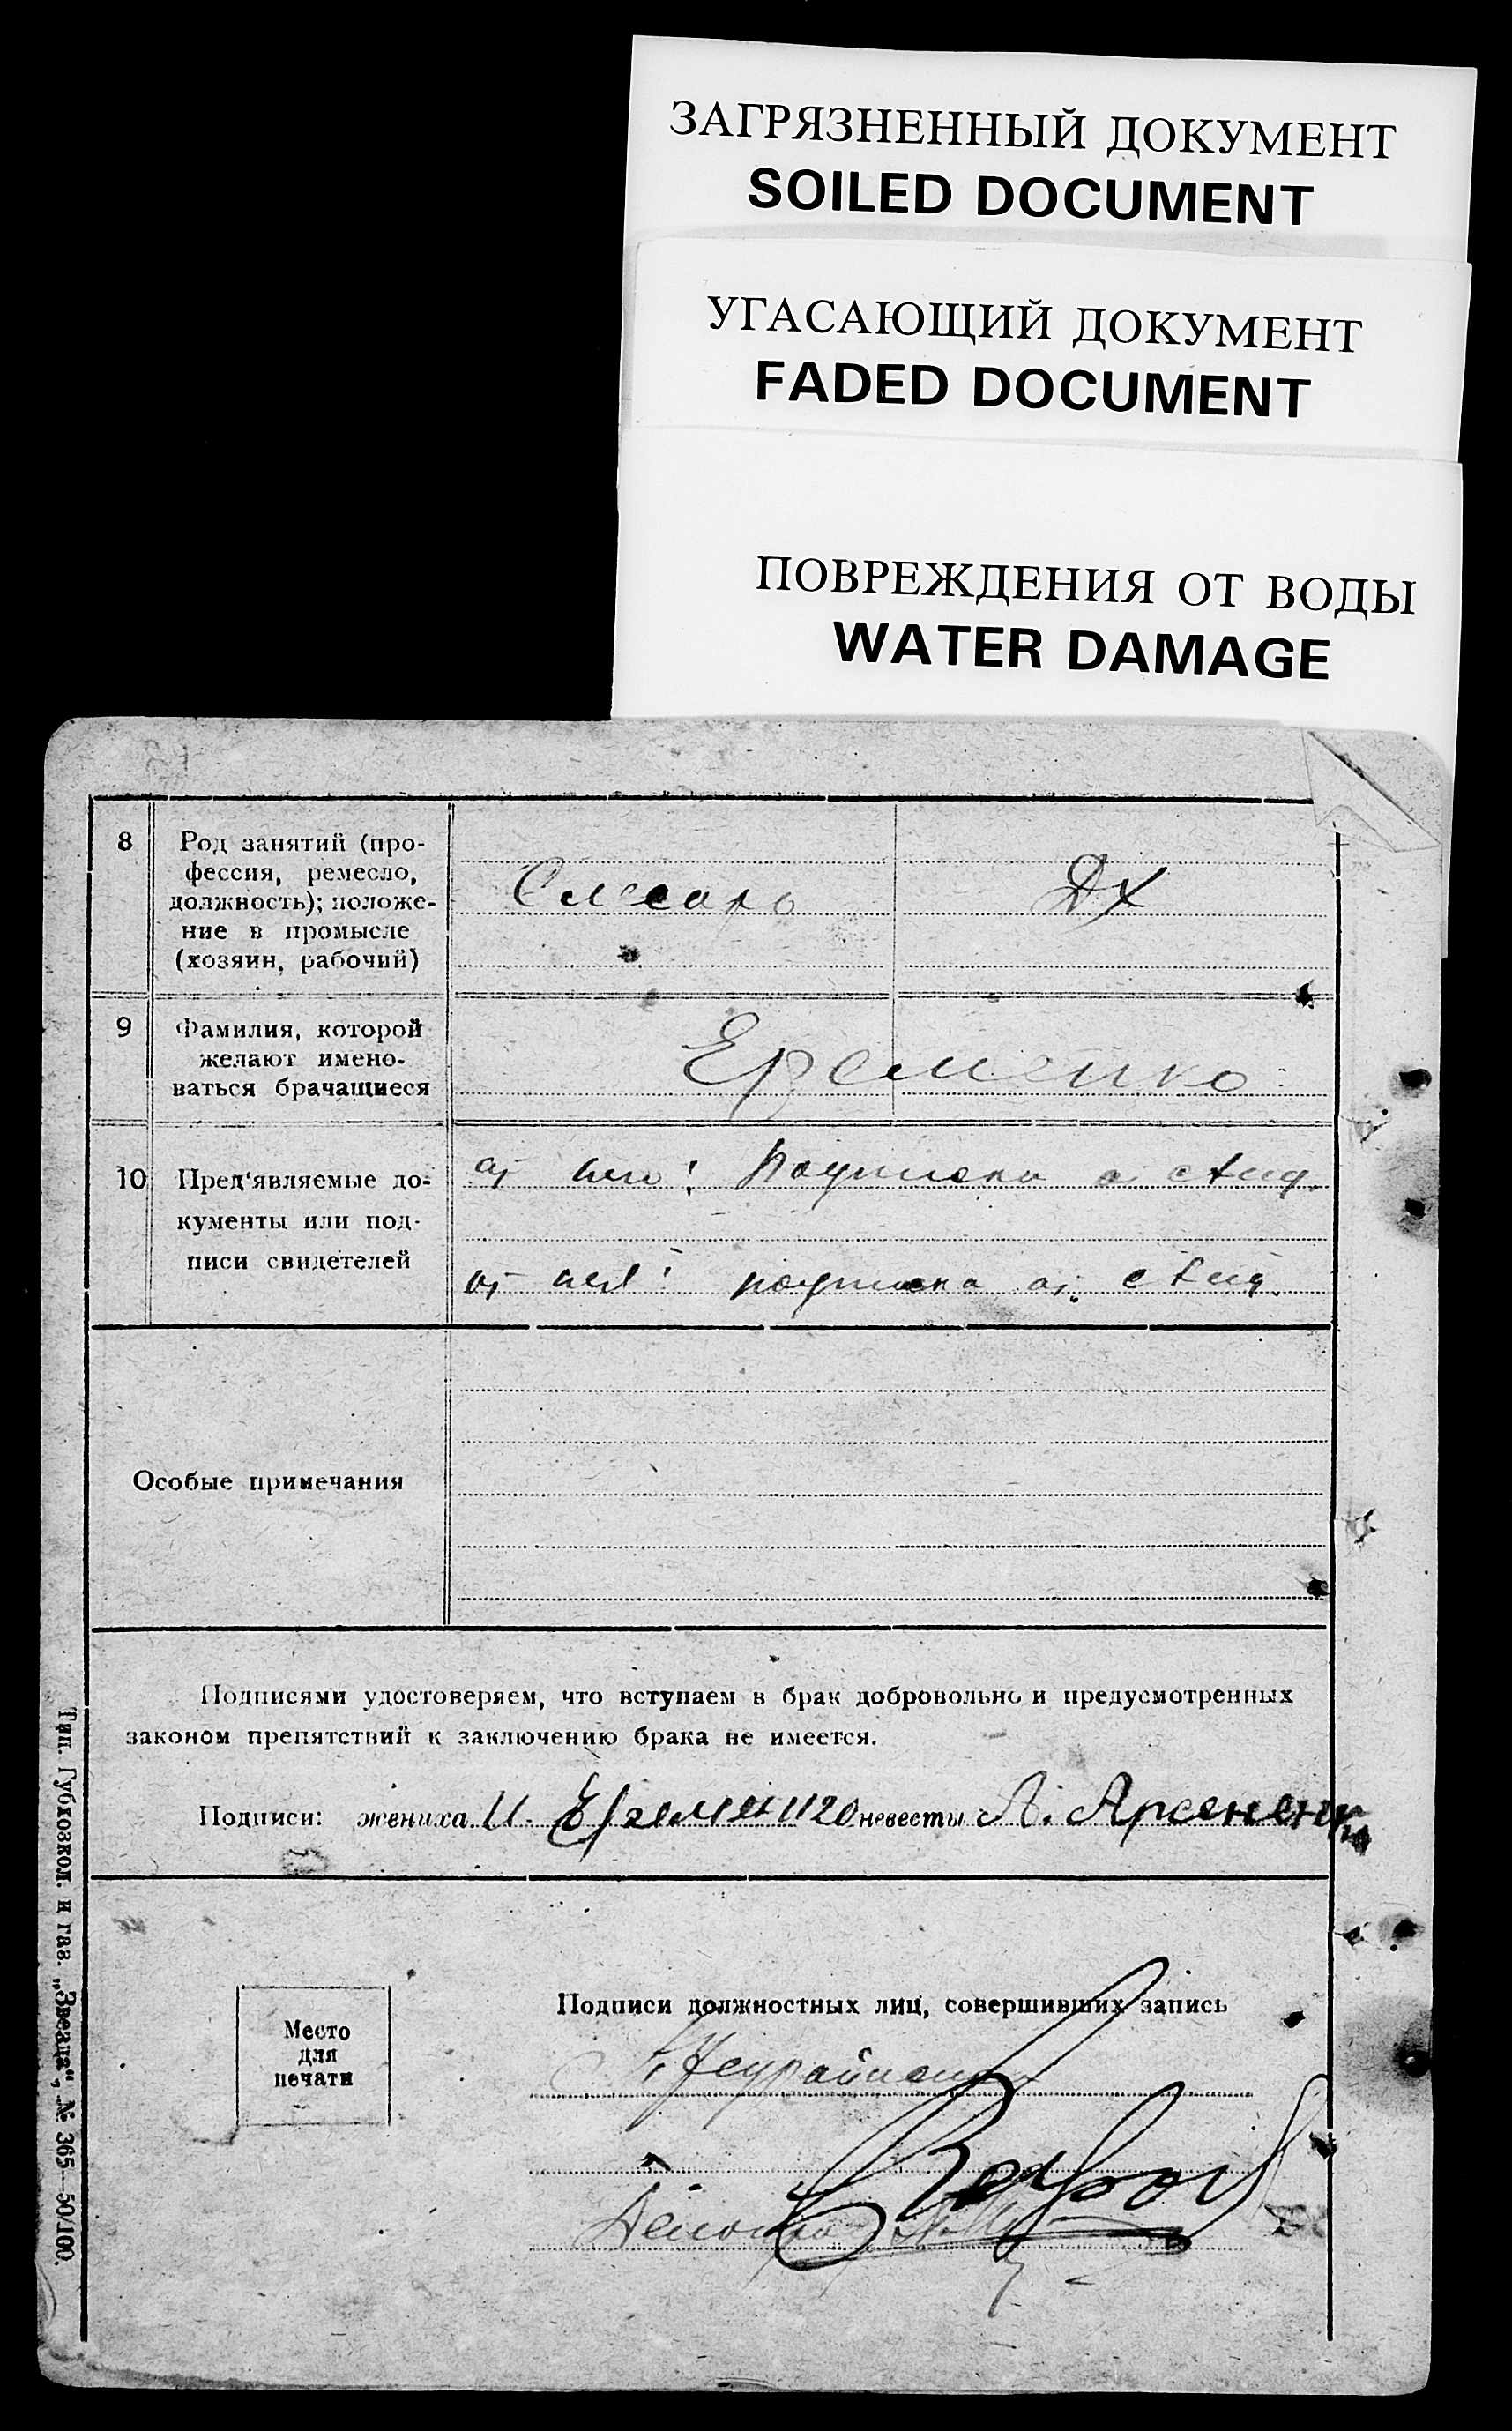 ЗАГРЯЗНЕННЫЙ ДОКУМЕНТ
SOILED DOCUMENT
УГАСАЮЩИЙ ДОКУМЕНТ
FADED DOCUMENT
ПОВРЕЖДЕНИЯ ОТ ВОДЫ
WATER DAMAGE
8
Род занятий (про-
фессия, ремесло,
должность); положе-
ние в промысле
(хозяин, рабочий)
Слесарь
ДХ
9
Фамилия, которой
желают имено-
ваться брачащиеся
Еременко
10
Пред'являемые до-
кументы или под-
писи свидетелей
от него: подписка
от нея: подписка
Особые примечания
Подписями удостоверяем, что вступаем в брак добровольно и предусмотренных
законом препятствий к заключению брака не имеется.
Подписи: жениха И. Еременко невесты А. Арсененко
Место
для
печати
Подписи должностных лиц, совершивших запись
Тип. Губхозкол. и газ. „Звезда“, № 365—50/100.